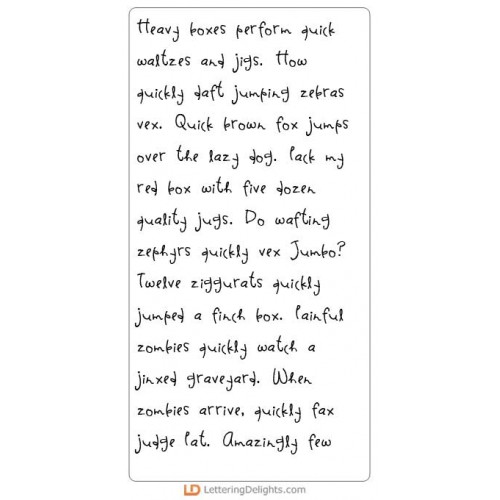 Heavy boxes perform quick
waltzes and jigs. How
quickly daft jumping zebras
vex. Quick brown fox jumps
over the lazy dog. Pack my
red box with five dozen
quality jugs. Do wafting
zephyrs quickly vex Jumbo?
Twelve ziggurats quickly
jumped a finch box. Painful
zombies quickly watch a
jinxed graveyard. When
zombies arrive, quickly fax
judge Pat. Amazingly few
LD LetteringDelights.com